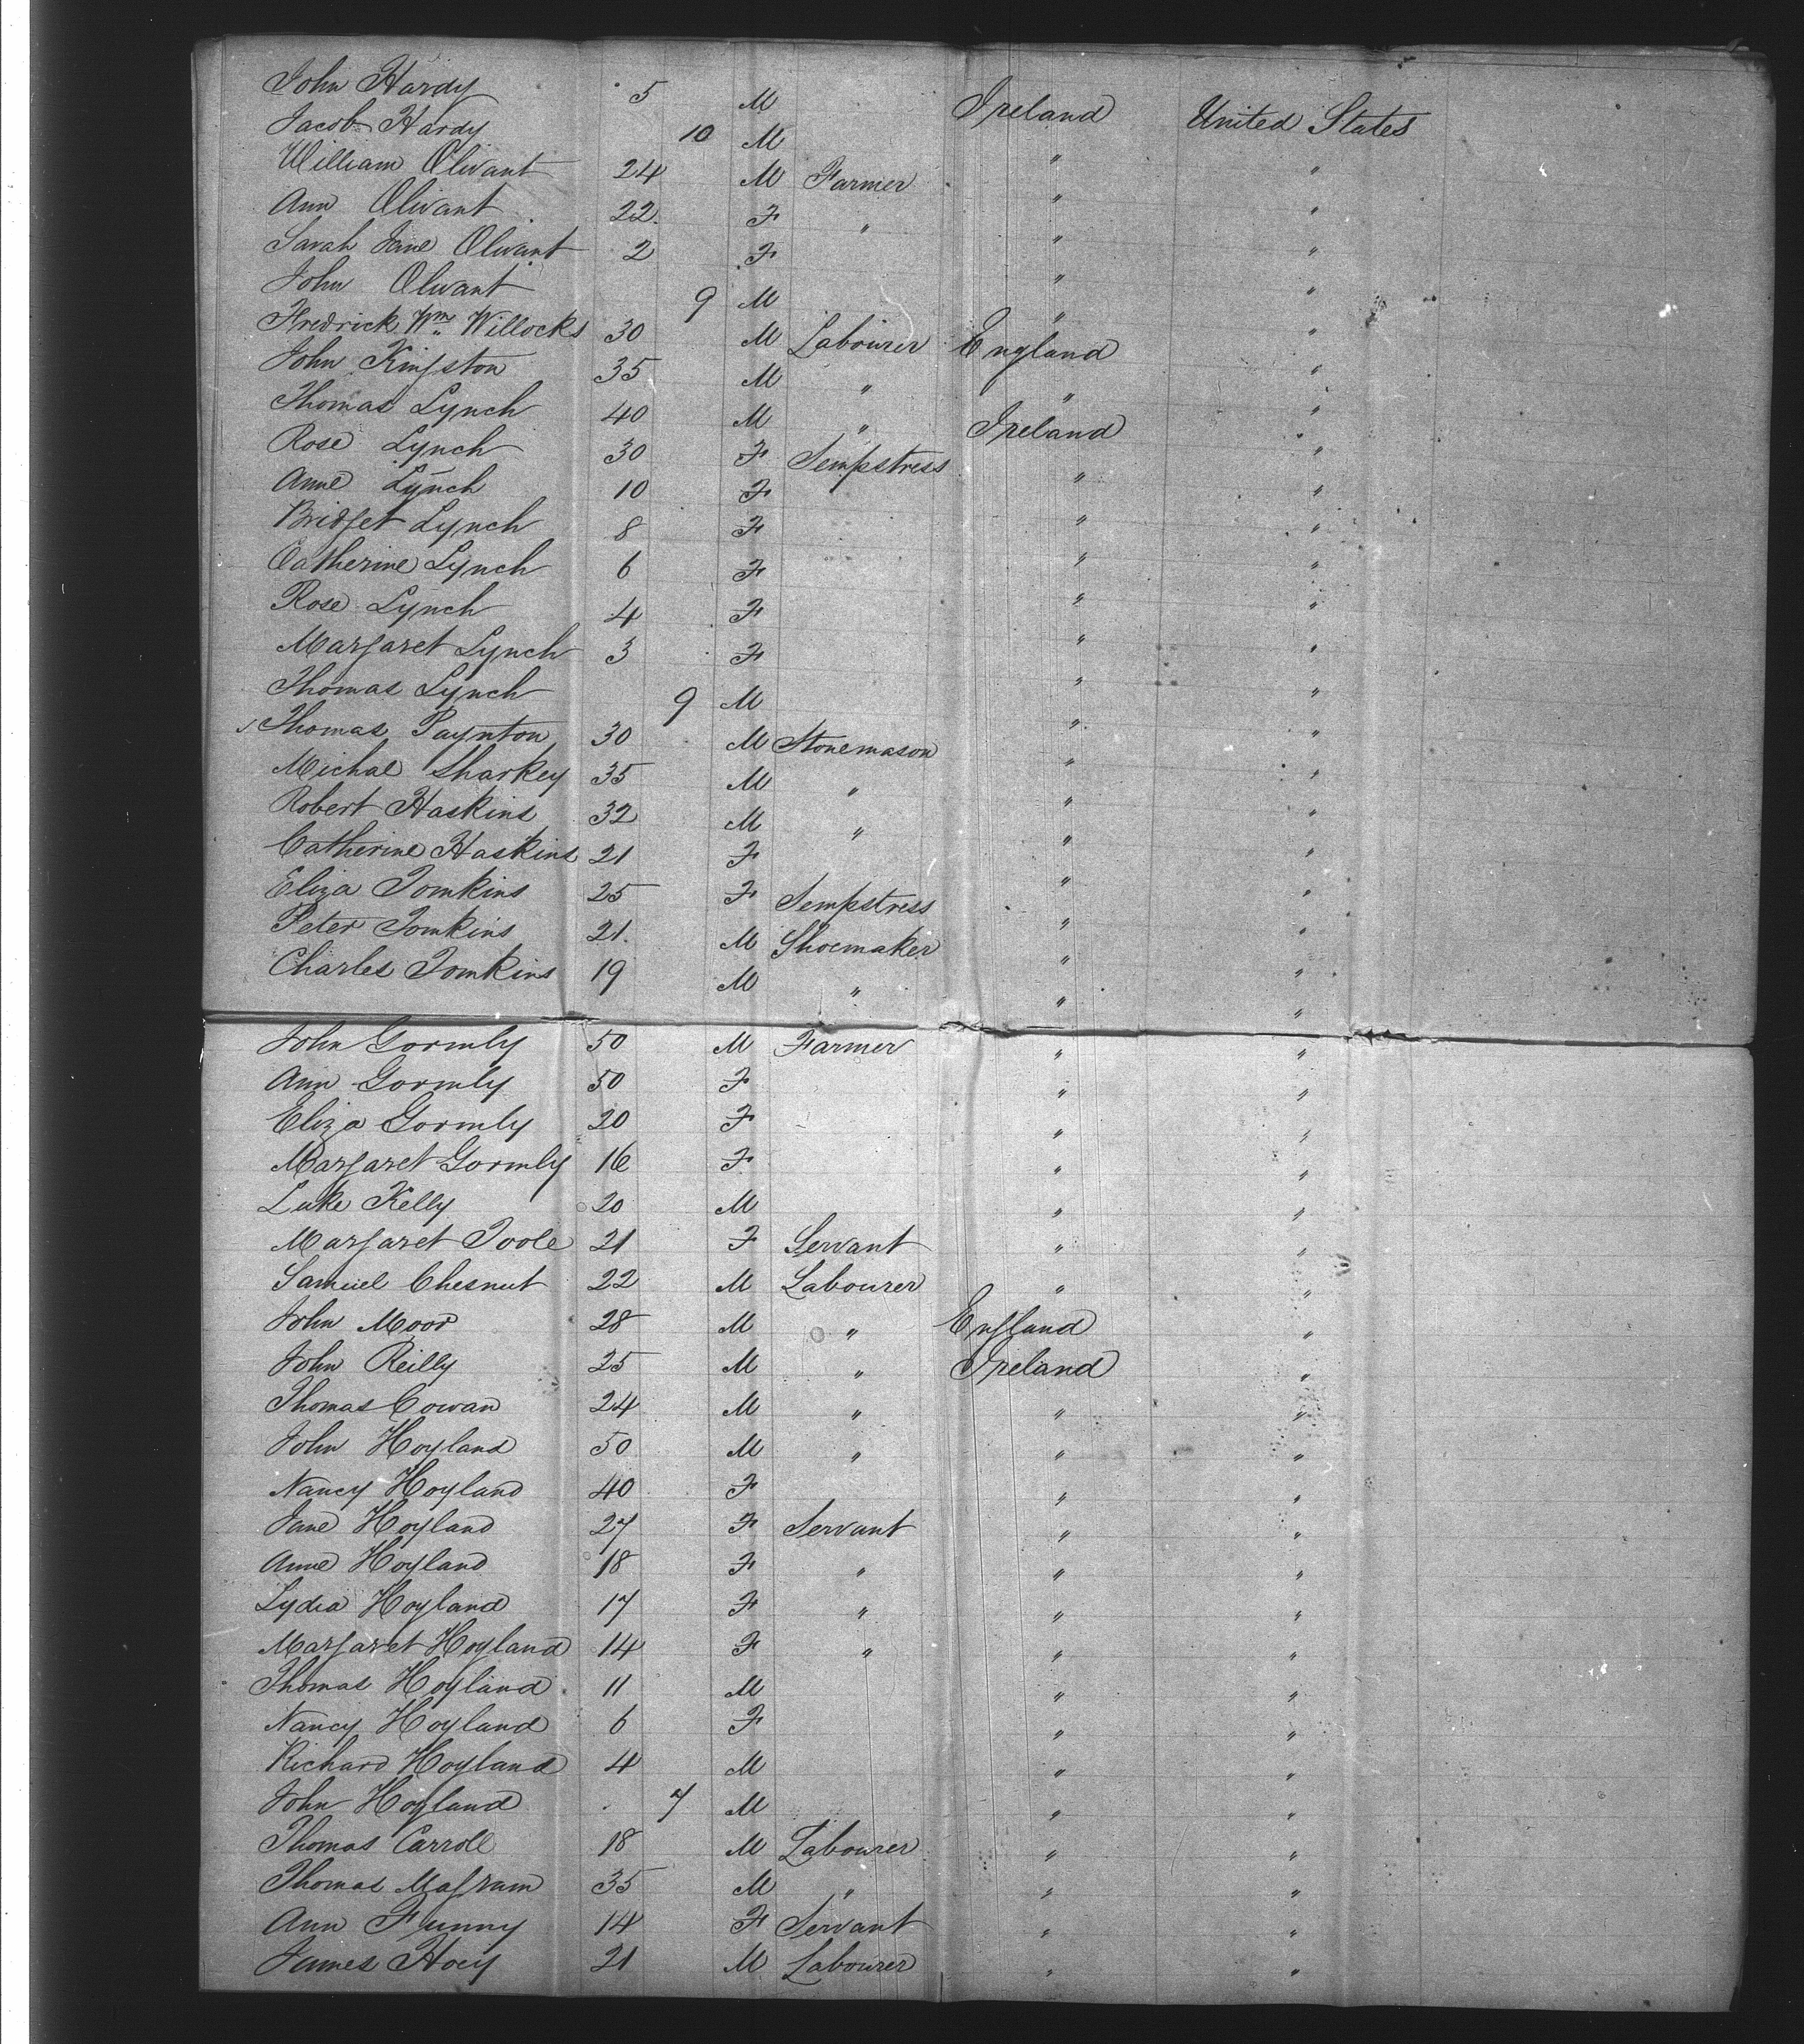 John Hardy 5 M Ireland United States
Jacob Hardy 10 M " "
William Olivant 24 M Farmer " "
Ann Olivant 22 F " " "
Sarah Jane Olivant 2 F " "
John Olivant 9 M " "
Fredrick Wm Willocks 30 M Labourer England "
John Kingston 35 M " " "
Thomas Lynch 40 M " Ireland "
Rose Lynch 30 F Sempstress " "
Anne Lynch 10 F " "
Bridget Lynch 8 F " "
Catherine Lynch 6 F " "
Rose Lynch 4 F " "
Margaret Lynch 3 F " "
Thomas Lynch 9 M " "
Thomas Paynton 30 M Stonemason " "
Michal Sharkey 35 M " " "
Robert Haskins 32 M " " "
Catherine Haskins 21 F " "
Eliza Tomkins 25 F Sempstress " "
Peter Tomkins 21 M Shoemaker " "
Charles Tomkins 19 M " " "
John Gormly 50 M Farmer " "
Ann Gormly 50 F " "
Eliza Gormly 20 F " "
Margaret Gormly 16 F " "
Luke Kelly 20 M " "
Margaret Toole 21 F Servant " "
Samuel Chesnut 22 M Labourer " "
John Moor 28 M " England "
John Reilly 25 M " Ireland "
Thomas Cowan 24 M " " "
John Hoyland 50 M " " "
Nancy Hoyland 40 F " "
Jane Hoyland 27 F Servant " "
Anne Hoyland 18 F " " "
Lydia Hoyland 17 F " " "
Margaret Hoyland 14 F " " "
Thomas Hoyland 11 M " "
Nancy Hoyland 6 F " "
Richard Hoyland 4 M " "
John Hoyland 7 M " "
Thomas Carroll 18 M Labourer " "
Thomas Magram 35 M " " "
Ann Funny 14 F Servant " "
James Hoey 21 M Labourer " "